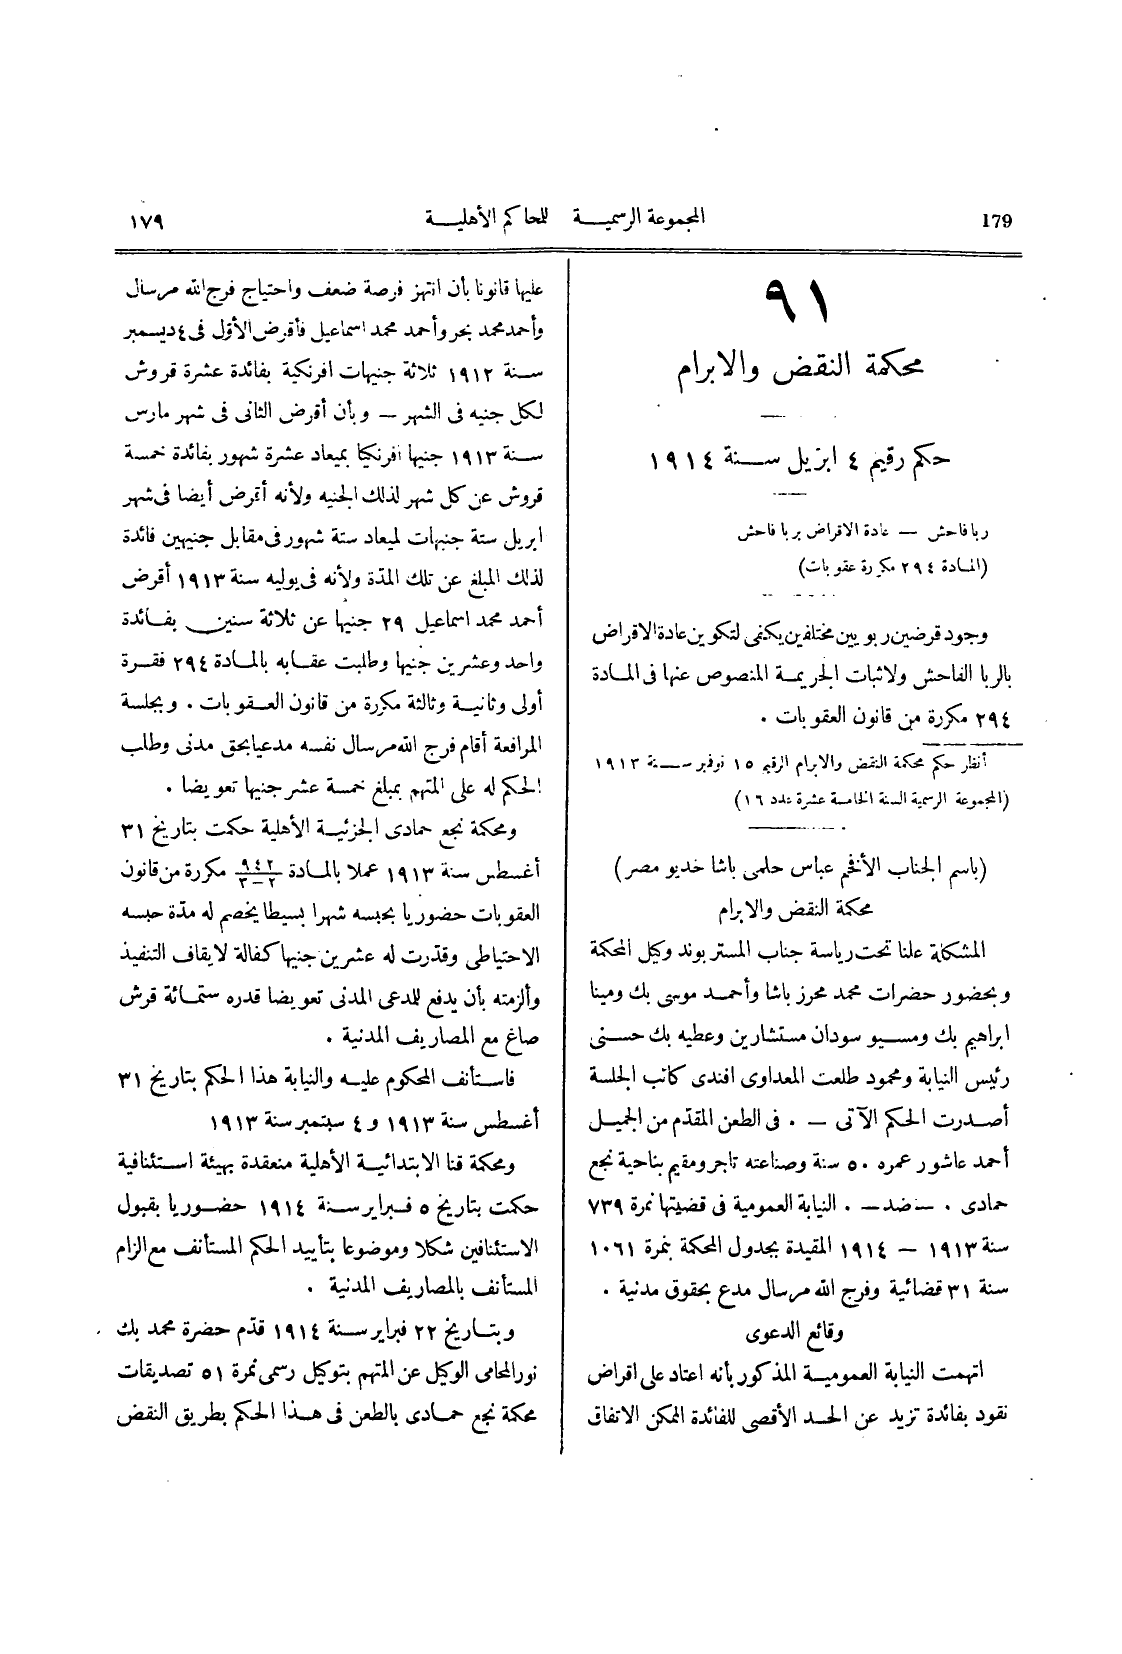 179
المجموعة الرسمية للمحاكم الأهلية
١٧٩
٩١
محكمة النقض والابرام
حكم رقيم ٤ ابريل سنة ١٩١٤
ربا فاحش — عادة الاقراض بربا فاحش
(المادة ٢٩٤ مكررة عقوبات)
وجود قرضين ربويين مختلفين يكفى لتكوين عادة الاقراض
بالربا الفاحش ولاثبات الجريمة المنصوص عنها فى المادة
٢٩٤ مكررة من قانون العقوبات .
أنظر حكم محكمة النقض والابرام الرقيم ١٥ نوفمبر سنة ١٩١٣
(المجموعة الرسمية السنة الخامسة عشرة عدد ١٦)
(باسم الجناب الأفخم عباس حلمى باشا خديو مصر)
محكمة النقض والابرام
المشكلة علنا تحت رياسة جناب المستر بوند وكيل المحكمة
وبحضور حضرات محمد محرز باشا وأحمد موسى بك ومينا
ابراهيم بك ومسيو سودان مستشارين وعطيه بك حسنى
رئيس النيابة ومحمود طلعت المعداوى افندى كاتب الجلسة
أصدرت الحكم الآتى — . فى الطعن المقدم من الجميل
أحمد عاشور عمره ٥٠ سنة وصناعته تاجر ومقيم بناحية نجع
حمادى . — ضد — . النيابة العمومية فى قضيتها نمرة ٧٣٩
سنة ١٩١٣ — ١٩١٤ المقيدة بجدول المحكمة بنمرة ١٠٦١
سنة ٣١ قضائية وفرج الله مرسال مدع بحقوق مدنية .
وقائع الدعوى
اتهمت النيابة العمومية المذكور بأنه اعتاد على اقراض
نقود بفائدة تزيد عن الحد الأقصى للفائدة الممكن الاتفاق
عليها قانونا بأن انتهز فرصة ضعف واحتياج فرج الله مرسال
وأحمد محمد بحر وأحمد محمد اسماعيل فأقرض الأوّل فى ٤ ديسمبر
سنة ١٩١٢ ثلاثة جنيهات افرنكية بفائدة عشرة قروش
لكل جنيه فى الشهر — وبأن أقرض الثانى فى شهر مارس
سنة ١٩١٣ جنيها افرنكيا بميعاد عشرة شهور بفائدة خمسة
قروش عن كل شهر لذلك الجنيه ولأنه أقرض أيضا فى شهر
ابريل ستة جنيهات لميعاد ستة شهور فى مقابل جنيهين فائدة
لذلك المبلغ عن تلك المدّة ولأنه فى يوليه سنة ١٩١٣ أقرض
أحمد محمد اسماعيل ٢٩ جنيها عن ثلاثة سنين بفائدة
واحد وعشرين جنيها وطلبت عقابه بالمادة ٢٩٤ فقرة
أولى وثانية وثالثة مكررة من قانون العقوبات . وبجلسة
المرافعة أقام فرج الله مرسال نفسه مدعيا بحق مدنى وطلب
الحكم له على المتهم بمبلغ خمسة عشر جنيها تعويضا .
ومحكمة نجع حمادى الجزئية الأهلية حكمت بتاريخ ٣١
أغسطس سنة ١٩١٣ عملا بالمادة ٩٤٢/٢—٣ مكررة من قانون
العقوبات حضوريا بحبسه شهرا بسيطا يخصم له مدّة حبسه
الاحتياطى وقدّرت له عشرين جنيها كفالة لايقاف التنفيذ
وألزمته بأن يدفع للمدعى المدنى تعويضا قدره ستمائة قرش
صاغ مع المصاريف المدنية .
فاستأنف المحكوم عليه والنيابة هذا الحكم بتاريخ ٣١
أغسطس سنة ١٩١٣ و ٤ سبتمبر سنة ١٩١٣
ومحكمة قنا الابتدائية الأهلية منعقدة بهيئة استئنافية
حكمت بتاريخ ٥ فبراير سنة ١٩١٤ حضوريا بقبول
الاستئنافين شكلا وموضوعا بتأييد الحكم المستأنف مع الزام
المستأنف بالمصاريف المدنية .
وبتاريخ ٢٢ فبراير سنة ١٩١٤ قدّم حضرة محمد بك
نور المحامى الوكيل عن المتهم بتوكيل رسمى نمرة ٥١ تصديقات
محكمة نجع حمادى بالطعن فى هذا الحكم بطريق النقض